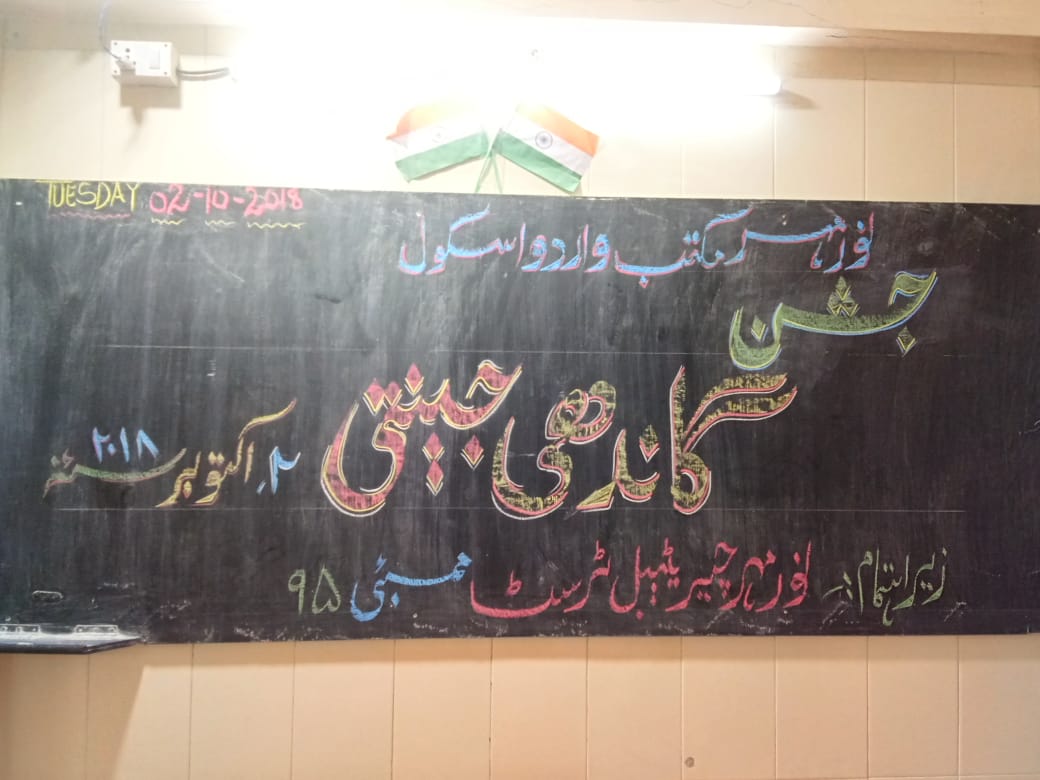 TUESDAY 02-10-2018
نور مہر مکتب و اردو اسکول
جشن
گاندھی جینتی
۲؍ اکتوبر ۲۰۱۸ سنہء
زیر اہتمام:۔ نور مہر چیریٹیبل ٹرسٹ ممبئی ۹۵